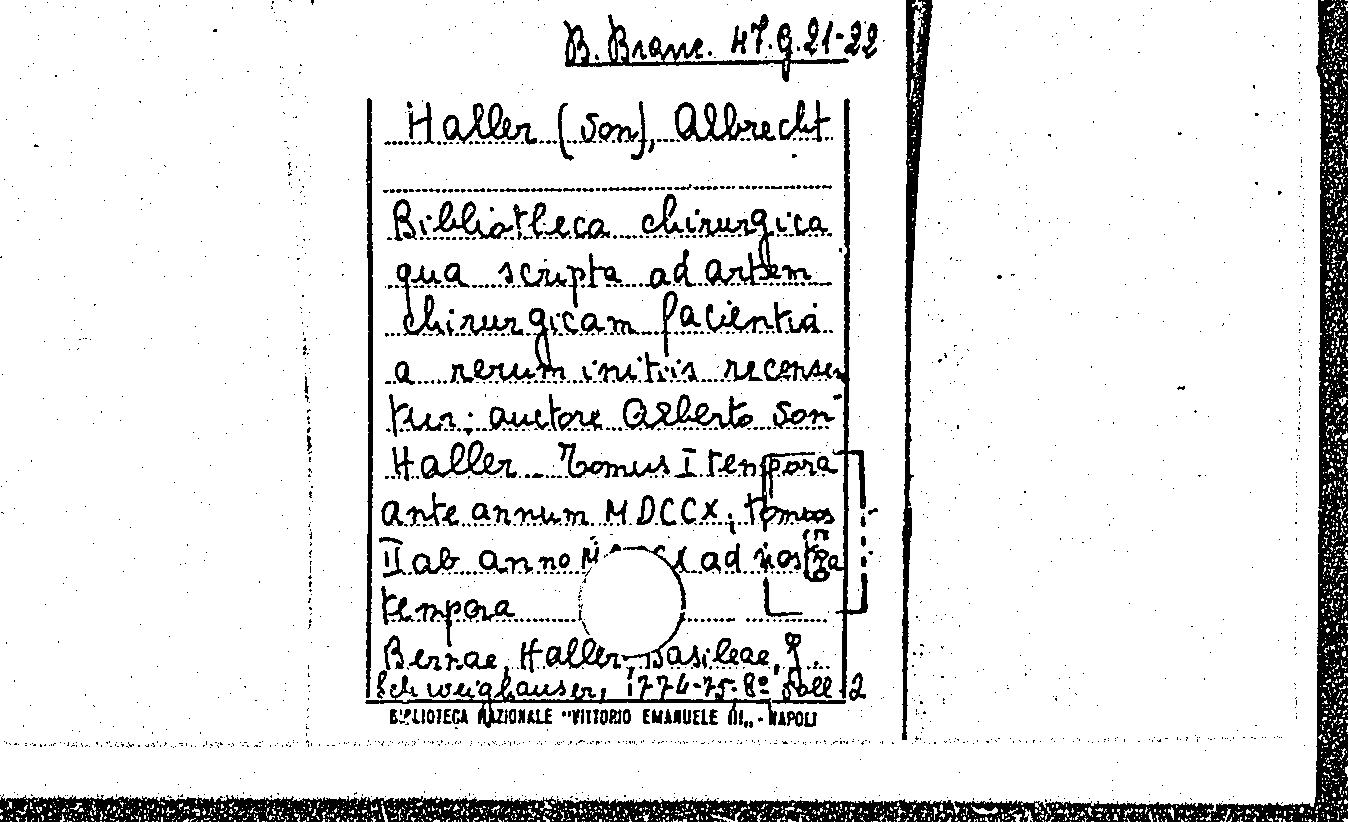 B. Branc. 47.G.21-22
Haller (son), Albrecht
Bibliotheca chirurgica
qua scripta ad artem
chirurgicam facientia
a rerum initiis recensen
tur; auctore Alberto son
Haller_ Tomus I tempora
ante annum MDCCX; tomus
II ab anno ad nostra
tempora
Bernae, Haller, Basileae, J.
Schweighauser, 1774-75. 8º voll 2
BIBLIOTECA NAZIONALE "VITTORIO EMANUELE III„ - NAPOLI